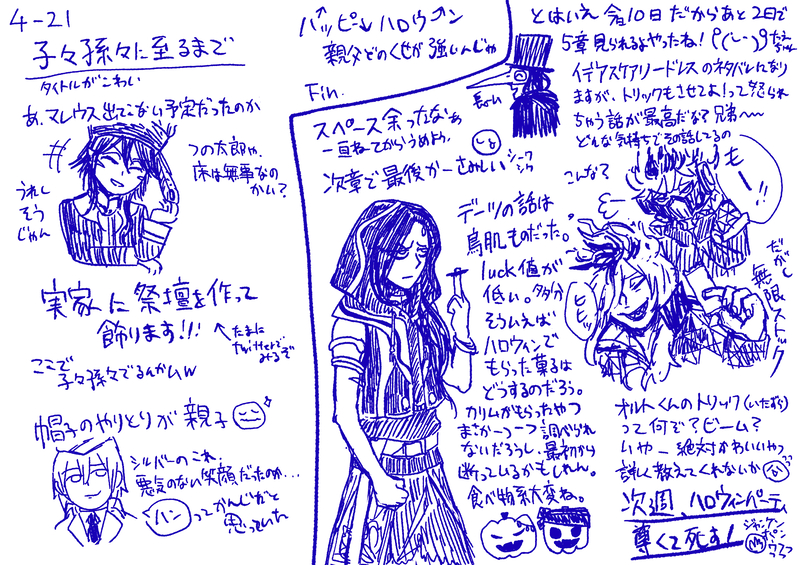 4-21
子々孫々に至るまで
タイトルがこわい
あ、マレウス出てこない予定だったのか
つの太郎や、
床は無事なの
かい?
うれし
そう
じゃん
実家に祭壇を作って
飾ります!!!
たまに
twitterで
みるぞ
ここで
子々孫々でるんかいw
帽子のやりとりが親子
シルバーのこれ、
悪気のない笑顔だったのか…
ハン
ってかんじだと
思っていた
ハッピー↓ハロウ↗ン
親父どのくせが強いんじゃ
Fin.
スペース余ったなぁ
一重ねてからうめよう。
次章で最後かーさみしい
デーツの話は
鳥肌ものだった。
luck値が
低い。多分
そういえば
ハロウィンで
もらった菓子は
どうするのだろう。
カリムがもらったやつ
まさか一つ一つ調べられ
ないだろうし、最初から
断っているかもしれん。
食べ物系大変ね。
とはいえ今日10日だからあと2日で
5章見られるよやったね!
長い
イデアスケアリードレスのネタバレになり
ますが、トリックもさせてよ!って怒られ
ちゃう話が最高だな?兄弟〜〜
どんな気持ちでその話してるの
こんな?
もー!!
ヒヒッ
だがし
無限ストック
オルトくんのトリック(いたずら)
って何ぞ?ビーム?
いやー絶対かわいいやつ
詳しく教えてくれないか
次週、ハロウィンパーティ
尊くて死す!
ジャンケン
ポン
ウフフ